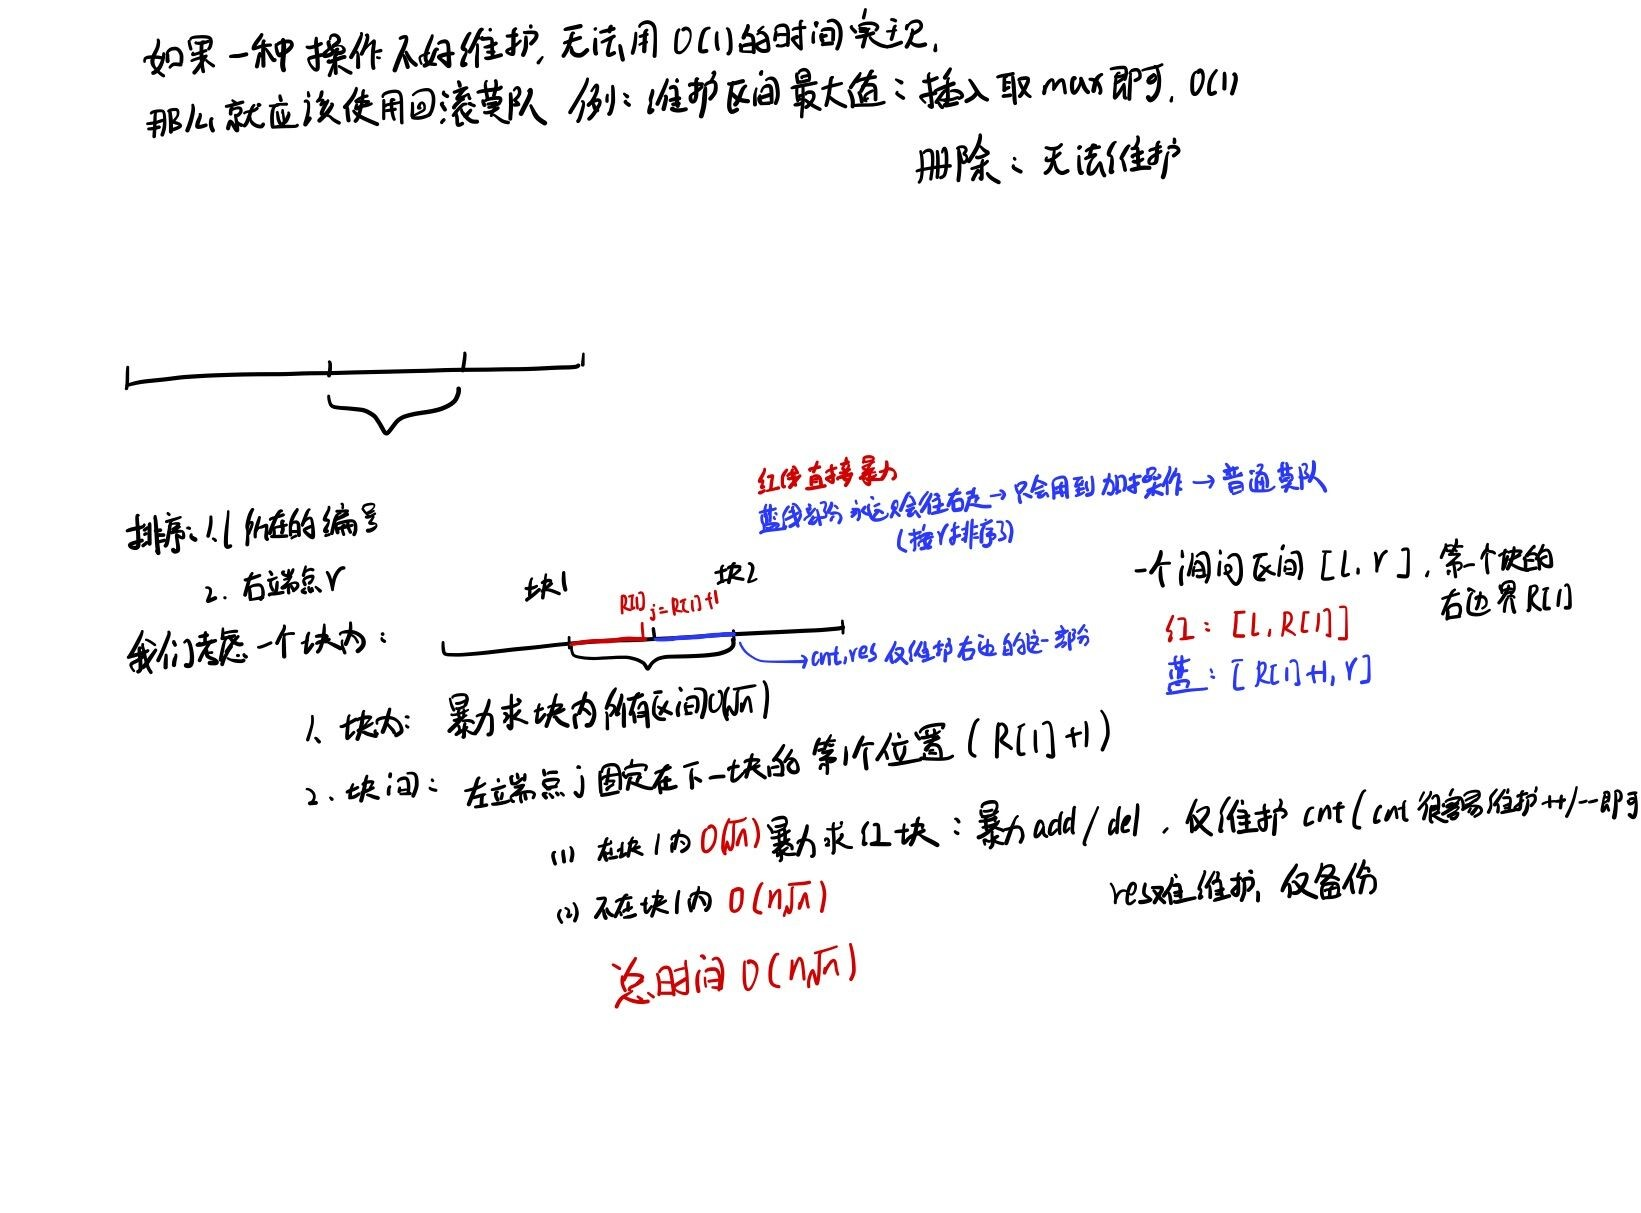 如果一种操作不好维护,无法用O(1)的时间实现,
那么就应该使用回滚莫队 例:维护区间最大值:插入取max即可,O(1)
删除:无法维护
红线直接暴力
蓝线部分永远只会往右走→只会用到加操作→普通莫队
(按r排序了)
排序:1.l所在的编号
2.右端点r
一个询问区间[l,r],第一个块的
右边界R[1]
红:[l,R[1]]
蓝:[R[1]+1,r]
我们考虑一个块内:
块1
块2
R[1]
j=R[1]+1
→cnt,res仅维护右边的这一部分
1、块内:暴力求块内所有区间O(√n)
2.块间:左端点j固定在下一块的第1个位置(R[1]+1)
(1)在块1内O(√n)暴力求红块:暴力add/del,仅维护cnt(cnt很容易维护++/--即可
res难维护,仅备份
(2)不在块1内O(n√n)
总时间O(n√n)